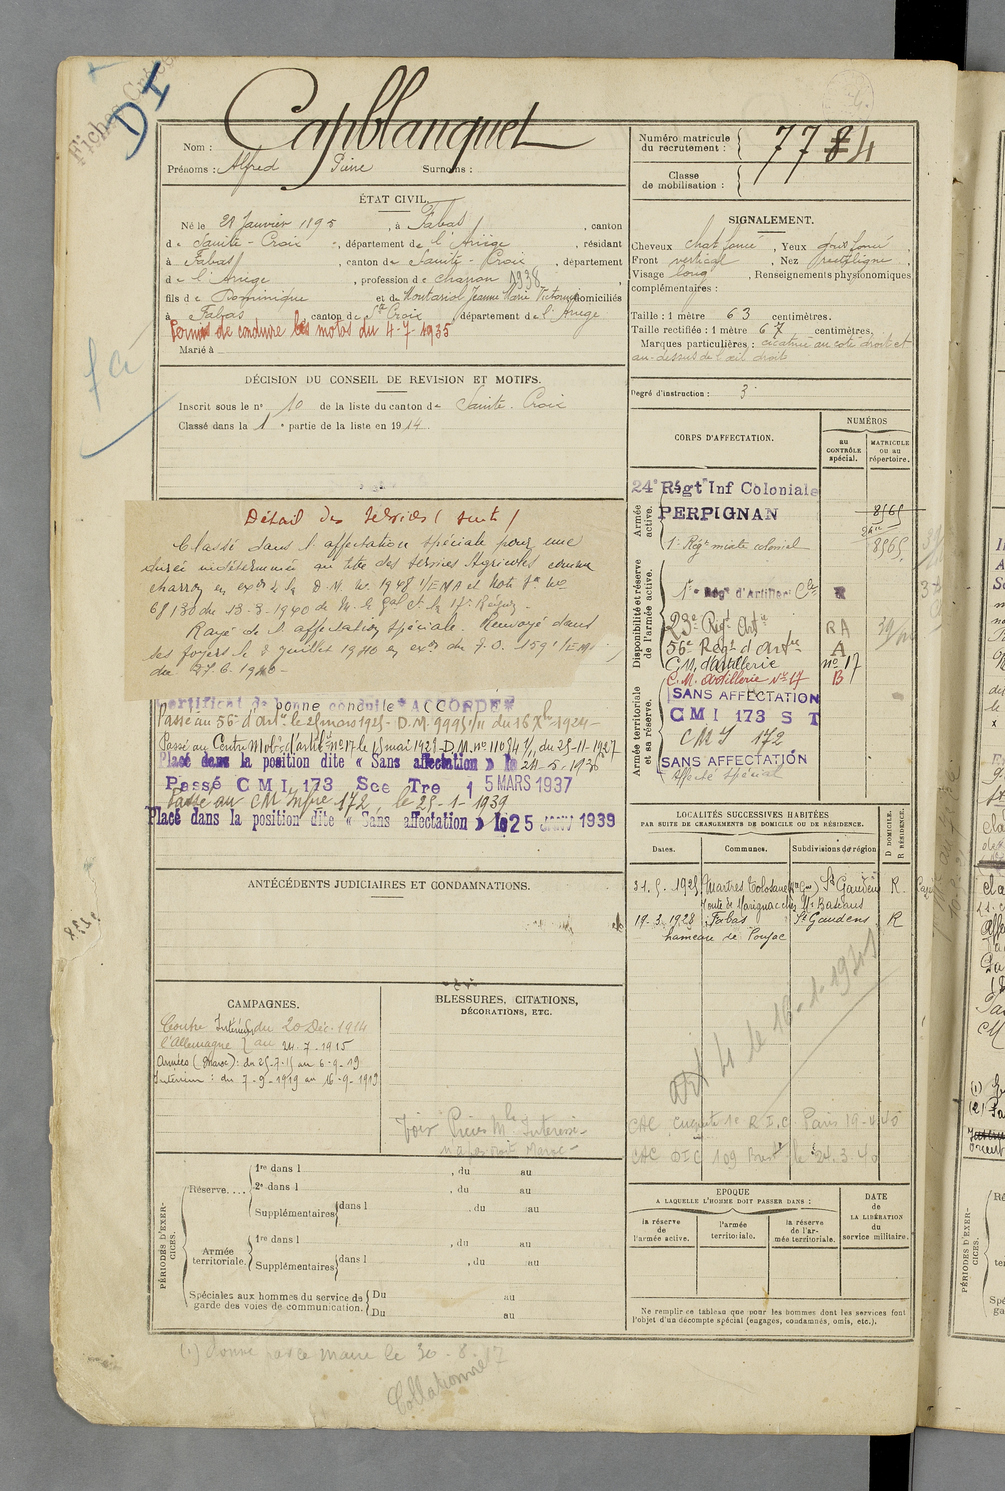 DI
Capblanquet
Nom :
Prénoms : Alfred Pierre Surnoms :
Numéro matricule
du recrutement :
7784
Classe
de mobilisation :
ÉTAT CIVIL.
Né le 28 Janvier 1895, à Fabas, canton
de Sainte-Croix, département de l'Ariège, résidant
à Fabas, canton de Sainte-Croix, département
de l'Ariège, profession de charron 1938,
fils de Dominique et de Montariol Jeanne Marie Victorine domiciliés
à Fabas, canton de Ste Croix, département de l'Ariège
Permis de conduire les motos du 4-7-1935
Marié à
SIGNALEMENT.
Cheveux chat foncé, Yeux foncé
Front vertical, Nez rectiligne.
Visage long, Renseignements physionomiques
complémentaires :
Taille : 1 mètre 63 centimètres.
Taille rectifiée : 1 mètre 67 centimètres.
Marques particulières : cicatrice au coté droit et
au-dessus de l'œil droit
Degré d'instruction : 3
DÉCISION DU CONSEIL DE REVISION ET MOTIFS.
Inscrit sous le n° 10 de la liste du canton de Sainte-Croix
Classé dans la 1e partie de la liste en 1914.
Détail des services (suite)
Classé dans l'affectation spéciale pour une
durée indéterminée au titre des services Agricoles comme
charron en exon de la D.M. No 1948 1/EMA et Note Sce No
68130 du 13-3-1940 de M. le Gal Ct la 17e Région.
Rayé de l'affectation spéciale. Renvoyé dans
ses foyers le 2 Juillet 1940 en exon du J.O. 1591/EM
du 27.6.1940-
Certificat de bonne conduite "ACCORDÉ"
Passé au 56e d'Artie le 25 mars 1925 - D.M. 9995 1/11 du 16 Xbre 1924-
Passé au Centre Mob. d'artie n° 17 le 15 mai 1928-D.M. n° 11084 1/1 du 25-11-1927
Placé dans la position dite « Sans affectation » le 24-5-1936
Passé CMI 173 Sce Tre 15 MARS 1937
Passé au CM Infrie 172, le 25-1-1939
Placé dans la position dite « Sans affectation » le 25 JANV 1939
CORPS D'AFFECTATION.
NUMÉROS
au
CONTRÔLE
spécial.
MATRICULE
OU AU
répertoire.
Armée
active.
24e Régt Inf Coloniale
PERPIGNAN
8565
1er Régt mixte colonial 8565
Disponibilité et réserve
de l'armée active.
1er Régt d'Artillerie Cle R
23e Régt Artie RA
56e Régt d'Artie A
C.M. d'artillerie n° 17
C.M. Artillerie N° 17 B
Armée territoriale
et sa réserve.
SANS AFFECTATION
CMI 173 ST
CMI 172
SANS AFFECTATION
Affecté spécial
LOCALITÉS SUCCESSIVES HABITÉES
PAR SUITE DE CHANGEMENTS DE DOMICILE OU DE RÉSIDENCE.
D DOMICILE.
R RÉSIDENCE.
Dates. Communes. Subdivisions de région
31.5.1925 Martres Tolosane (Hte Gne) St Gaudens R.
Route de Marignac chez Mr Bascans
19.3.1928 Fabas St Gaudens R
hameau de Poujac
Art 4 le 16-1-1945
ANTÉCÉDENTS JUDICIAIRES ET CONDAMNATIONS.
CAMPAGNES.
Contre Intérieur du 20 Déc. 1914
l'Allemagne au 24-7-1915
Armées (Maroc) : du 25-7-15 au 6-9-19
Intérieur : du 7-9-1919 au 16-9-1919
BLESSURES, CITATIONS,
DÉCORATIONS, ETC.
Voir Pièces Mle Intéressé
n'a pas droit Maroc-
CAC 1e R.I.C. Paris 19-4-40
CAC DIC 109 Brest le 24.3.40
PÉRIODES D'EXERCICES.
Réserve....
1re dans l , du au
2e dans l , du au
Supplémentaires dans l , du au
Armée
territoriale.
1re dans l , du au
Supplémentaires dans l , du au
Spéciales aux hommes du service de
garde des voies de communication.
Du au
Du au
EPOQUE
A LAQUELLE L'HOMME DOIT PASSER DANS :
DATE
de
LA LIBÉRATION
du
service militaire.
la réserve
de
l'armée active.
l'armée
territoriale.
la réserve
de l'armée territoriale.
Ne remplir ce tableau que pour les hommes dont les services font
l'objet d'un décompte spécial (engagés, condamnés, omis, etc.).
(1) donné par le Maire le 30-8-
Collationné